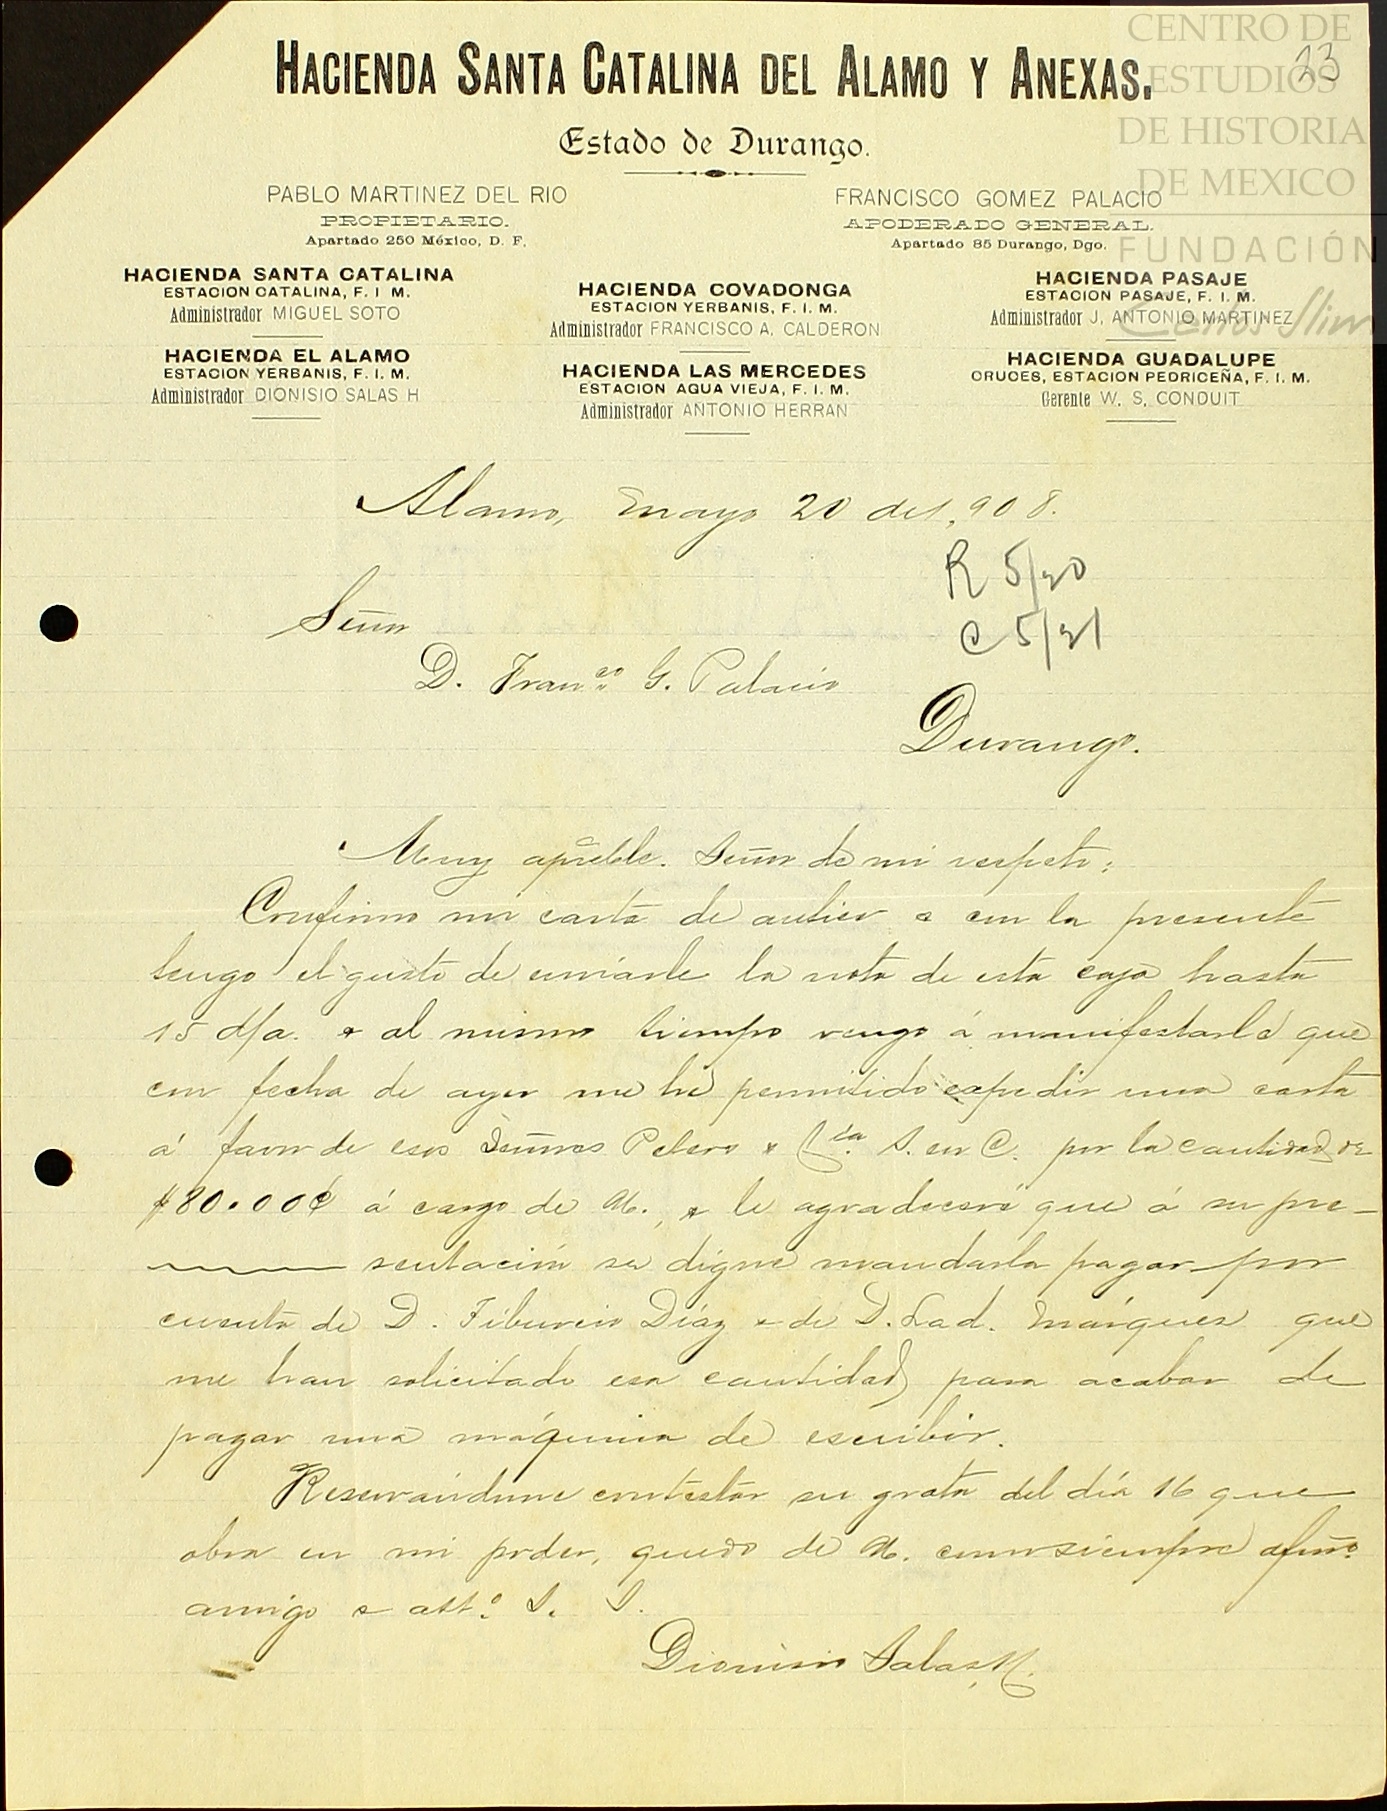 CENTRO DE
ESTUDIOS
DE HISTORIA
DE MEXICO
FUNDACIÓN
Carlos Slim
33
HACIENDA SANTA CATALINA DEL ALAMO Y ANEXAS.
Estado de Durango.
PABLO MARTINEZ DEL RIO
PROPIETARIO.
Apartado 250 México, D. F.
FRANCISCO GOMEZ PALACIO
APODERADO GENERAL.
Apartado 85 Durango, Dgo.
HACIENDA SANTA CATALINA
ESTACION CATALINA, F. I M.
Administrador MIGUEL SOTO
HACIENDA EL ALAMO
ESTACION YERBANIS, F. I. M.
Administrador DIONISIO SALAS H
HACIENDA COVADONGA
ESTACION YERBANIS, F. I. M.
Administrador FRANCISCO A. CALDERON
HACIENDA LAS MERCEDES
ESTACION AGUA VIEJA, F. I. M.
Administrador ANTONIO HERRAN
HACIENDA PASAJE
ESTACION PASAJE, F. I. M.
Administrador J. ANTONIO MARTINEZ
HACIENDA GUADALUPE
CRUCES, ESTACION PEDRICEÑA, F. I. M.
Gerente W. S. CONDUIT
Alamo, Mayo 20 de 1,908.
R 5/20
C 5/21
Señor
D. Franco. G. Palacio
Durango.
Muy apreble. Señor de mi respeto:
Confirmo mi carta de antier & con la presente
tengo el gusto de enviarle la nota de esta caja hasta
15 d/a. & al mismo tiempo vengo á manifestarle que
con fecha de ayer me he permitido expedir una carta
á favor de esos Señores & Cía. S. en C. por la cantidad de
$80.00¢ á cargo de U., & le agradeceré que á su pre-
sentación se digne mandarla pagar por
cuenta de D. Tiburcio Díaz & de D. Lad. Márquez que
me han solicitado esa cantidad para acabar de
pagar una máquina de escribir.
Reservándome contestar su grata del día 16 que
obra en mi poder, quedo de U. como siempre afmo.
amigo & atto. S. S.
Dionisio Salas H.